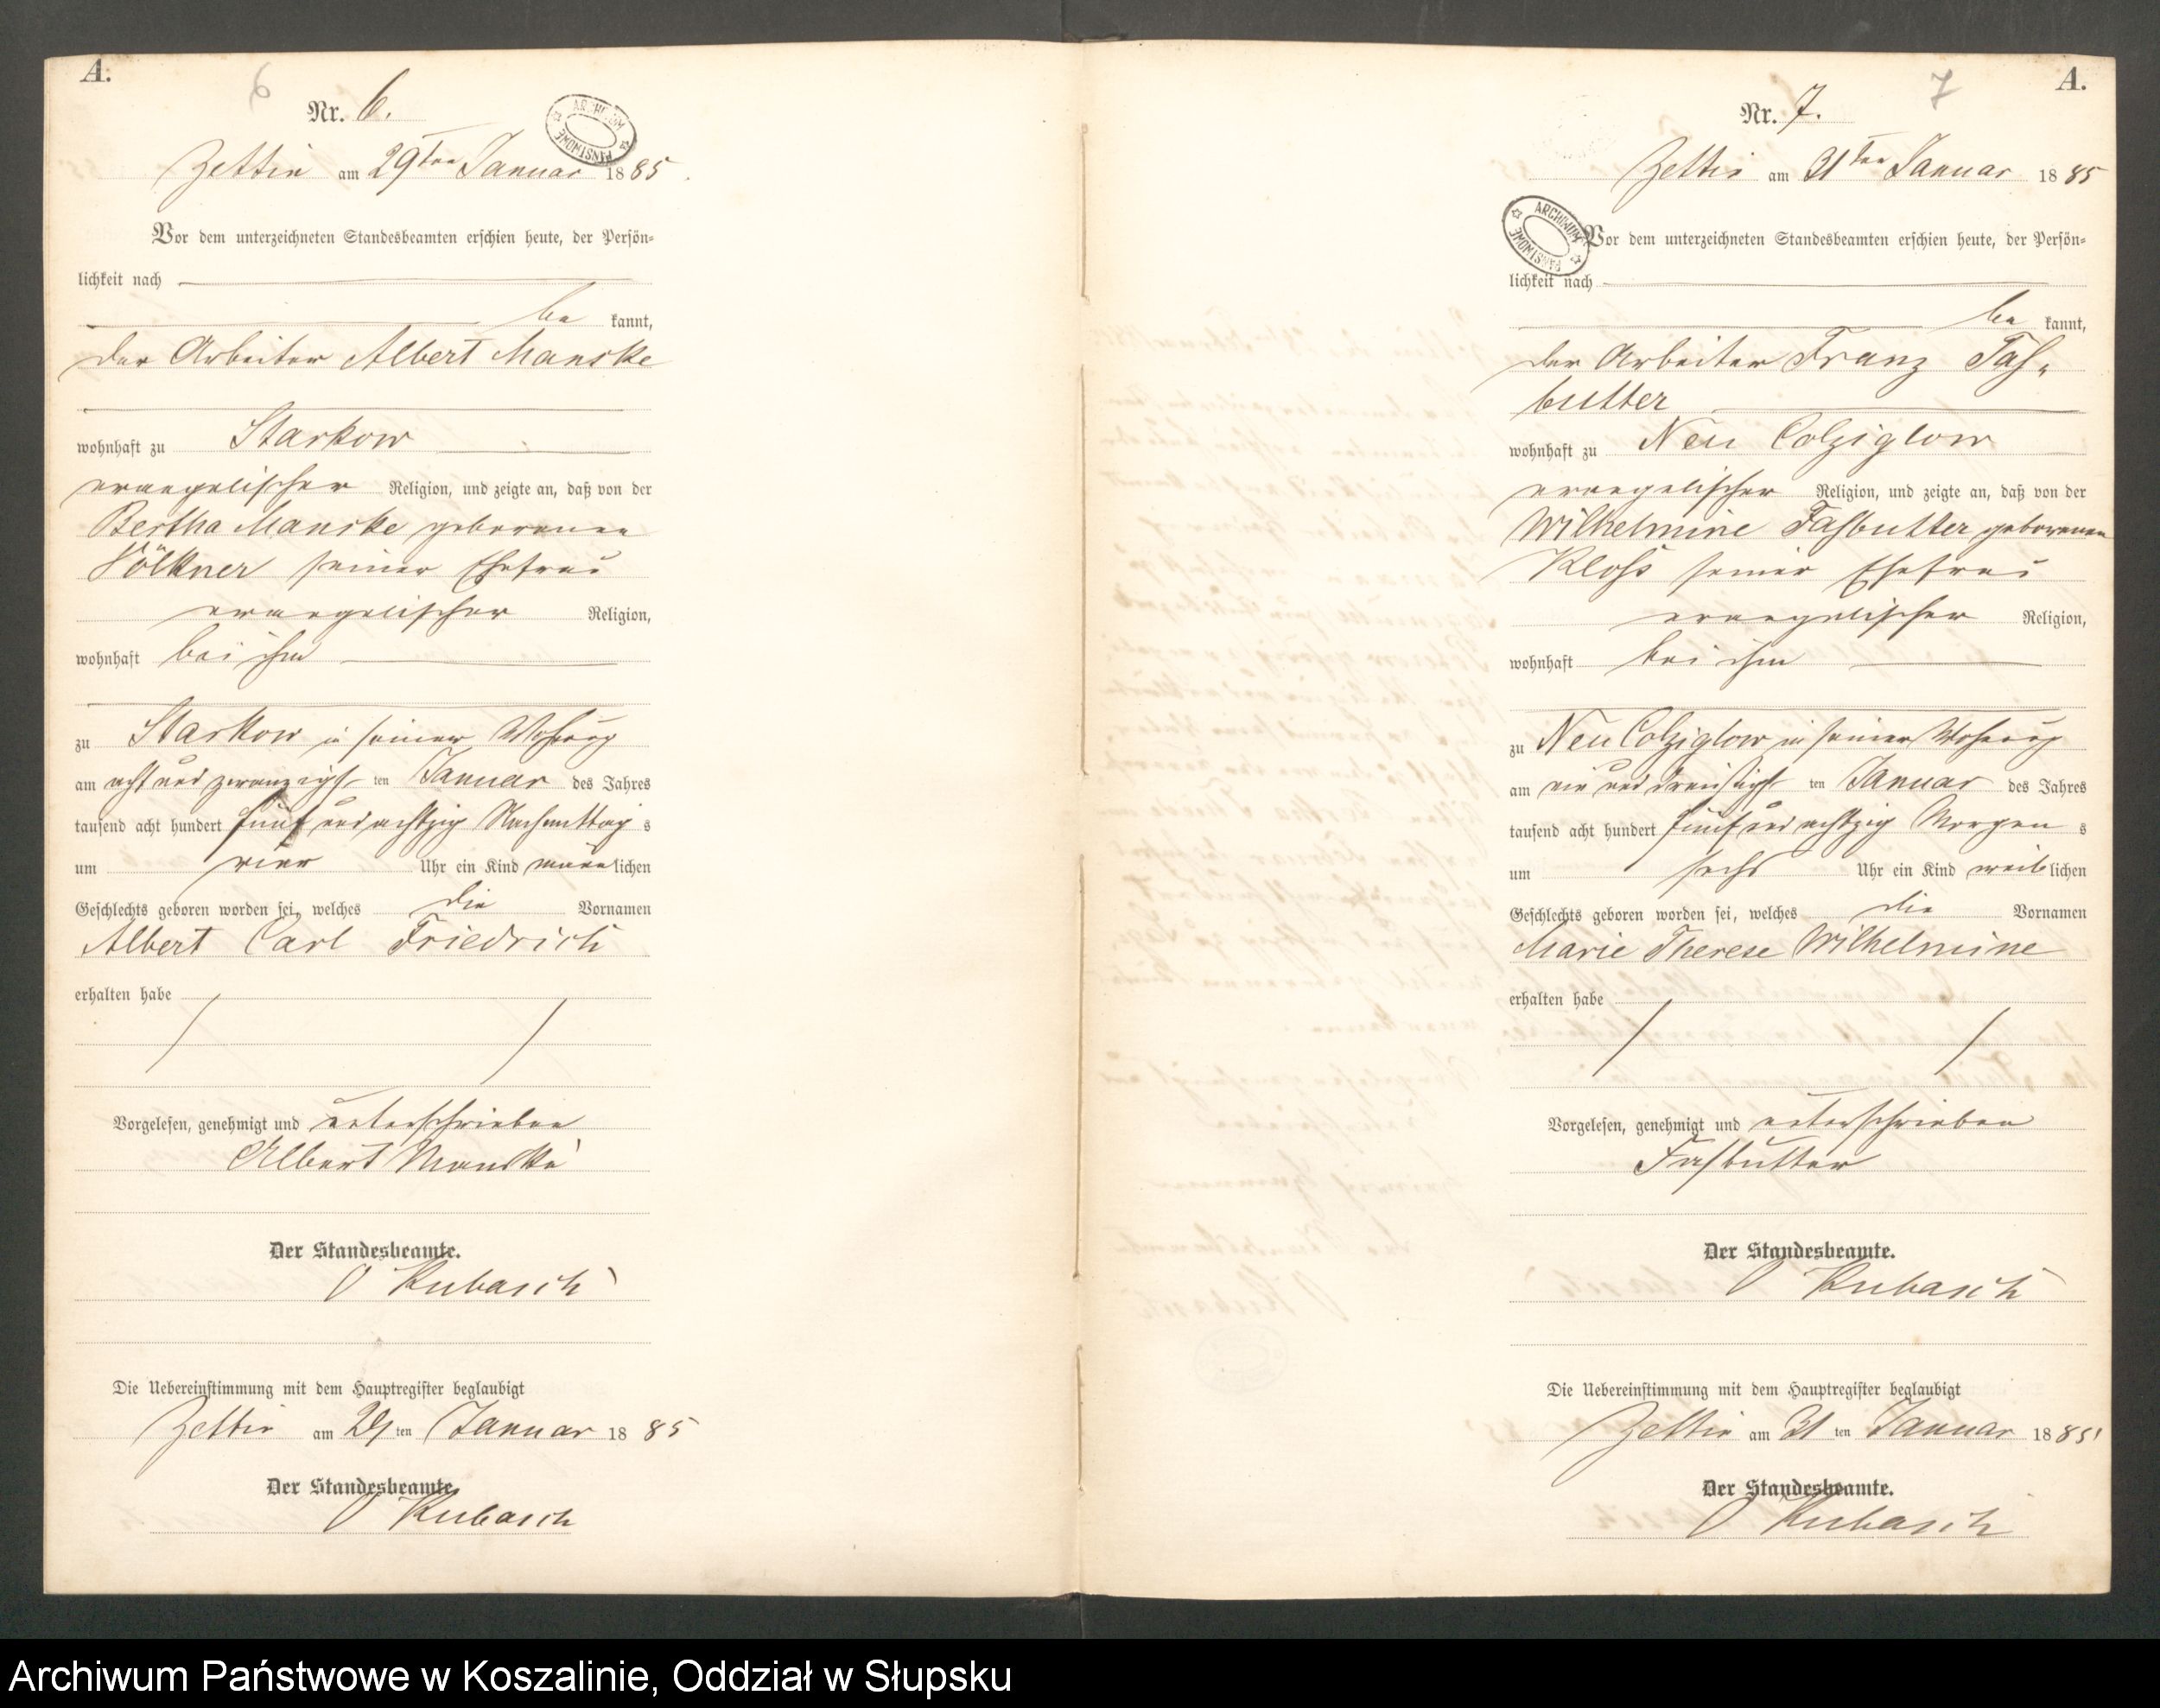 A.
6
Nr. 6.
ARCHIWUM PAŃSTWOWE
Zettin am 29ten Januar 1885.
Vor dem unterzeichneten Standesbeamten erschien heute, der Persön-
lichkeit nach
be kannt,
der Arbeiter Albert Manske
wohnhaft zu Starkow
evangelischer Religion, und zeigte an, daß von der
Bertha Manske geborenen
Völkner seiner Ehefrau
evangelischer Religion,
wohnhaft bei ihm
zu Starkow in seiner Wohnung
am acht und zwanzigst ten Januar des Jahres
tausend acht hundert fünf und achtzig Nachmittag s
um vier Uhr ein Kind männlichen
Geschlechts geboren worden sei, welches die Vornamen
Albert Carl Friedrich
erhalten habe
Vorgelesen, genehmigt und unterschrieben
Albert Manske
Der Standesbeamte.
O Kubasch
Die Uebereinstimmung mit dem Hauptregister beglaubigt
Zettin am 29 ten Januar 18 85
Der Standesbeamte.
O Kubasch
A.
7
Nr. 7.
Zettin am 31ten Januar 18 85
ARCHIWUM PAŃSTWOWE
Vor dem unterzeichneten Standesbeamten erschien heute, der Persön-
lichkeit nach
be kannt,
der Arbeiter Franz Fas-
butter
wohnhaft zu Neu Colziglow
evangelischer Religion, und zeigte an, daß von der
Wilhelmine Fasbutter geborenen
Kloss seiner Ehefrau
evangelischer Religion,
wohnhaft bei ihm
zu Neu Colziglow in seiner Wohnung
am ein und dreißigst ten Januar des Jahres
tausend acht hundert fünf und achtzig Morgen s
um sechs Uhr ein Kind weiblichen
Geschlechts geboren worden sei, welches die Vornamen
Marie Therese Wilhelmine
erhalten habe
Vorgelesen, genehmigt und unterschrieben
Fasbutter
Der Standesbeamte.
O Kubasch
Die Uebereinstimmung mit dem Hauptregister beglaubigt
Zettin am 31 ten Januar 18 85
Der Standesbeamte.
O Kubasch
Archiwum Państwowe w Koszalinie, Oddział w Słupsku